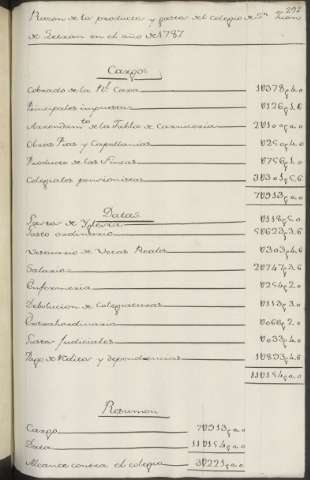 292
Razon de lo producido y gastos del colegio de Sn. Juan
de Letran en el año de 1787
Cargos
Cobrado de la Rl. Caxa 1U378p4.0
Principales impuestos U126p1.6
Arrendamto. de la Tabla de Carniceria 2U100p0.0
Obras Pias y Capellanias U250p4.0
Producto de las Fincas U756p1.0
Colegiales pensionistas 3U301p5.6
7U913p0.0
Datas
Gastos de Yglesia U118p5.0
Gasto ordinario 5U623p3.6
Vestuario de Becas Reales U303p4.6
Salarios 2U747p3.6
Enfermeria U254p2.0
Debolucion de Colegiaturas U113p3.0
Extrahordinario U066p2.0
Gastos Judiciales U033p4.0
Pago de Reditos y dependencias 1U893p4.6
11U154p0.0
Resumen
Cargo 7U913p0.0
Data 11U154p0.0
Alcance contra el colegio 3U221p0.0